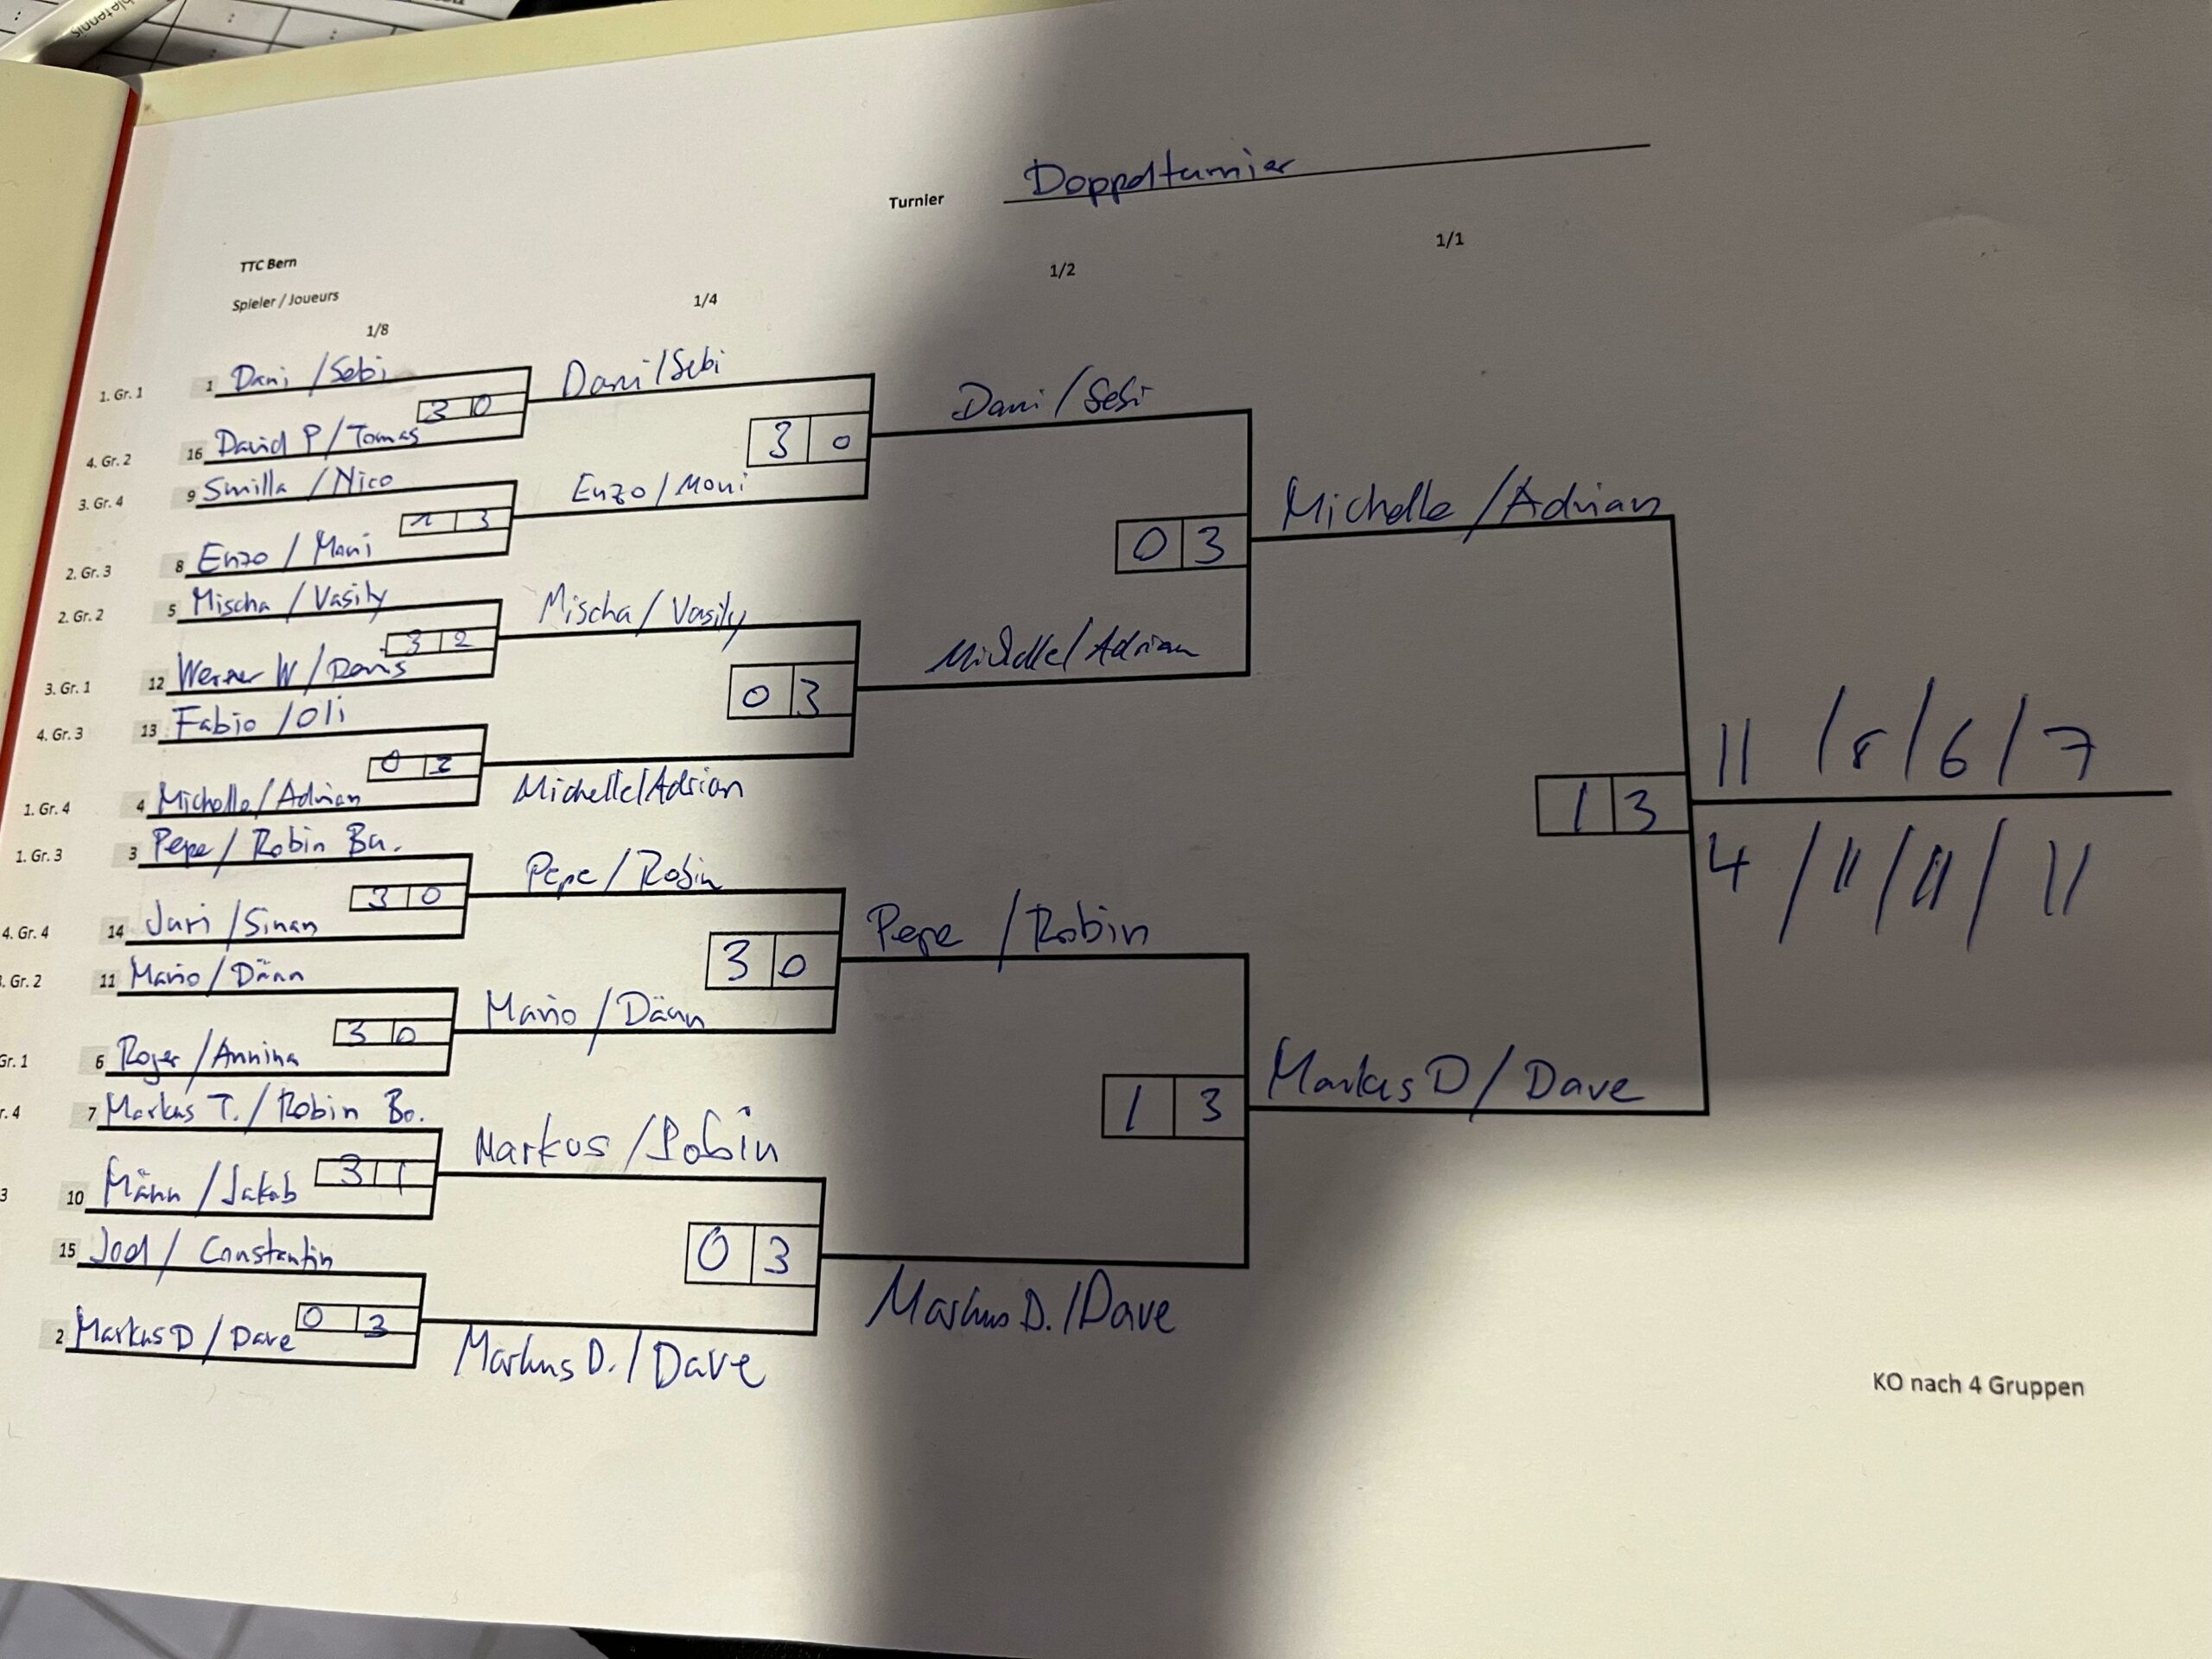 Turnier Doppelturnier
TTC Bern
Spieler / Joueurs
1/8 1/4 1/2 1/1
1. Gr. 1 1 Dani / Sebi
3 0
4. Gr. 2 16 David P / Tomas
3. Gr. 4 9 Smilla / Nico
1 3
2. Gr. 3 8 Enzo / Moni
2. Gr. 2 5 Mischa / Vasily
3 2
3. Gr. 1 12 Werner W /
4. Gr. 3 13 Fabio / Oli
0 3
1. Gr. 4 4 Michelle / Adrian
1. Gr. 3 3 Pepe / Robin Bu.
3 0
4. Gr. 4 14 Juri / Sinan
. Gr. 2 11 Mario / Dänn
3 0
Gr. 1 6 Roger / Annina
r. 4 7 Markus T. / Robin Bo.
3 1
3 10 Männ / Jakob
15 Joel / Constantin
0 3
2 Markus D / Dave
Dani / Sebi
3 0
Enzo / Moni
Mischa / Vasily
0 3
Michelle / Adrian
Pepe / Robin
3 0
Mario / Dänn
Markus / Robin
0 3
Markus D. / Dave
Dani / Sebi
0 3
Michelle / Adrian
Pepe / Robin
1 3
Markus D. / Dave
Michelle / Adrian
1 3
Markus D / Dave
11 / 8 / 6 / 7
4 / 11 / 11 / 11
KO nach 4 Gruppen